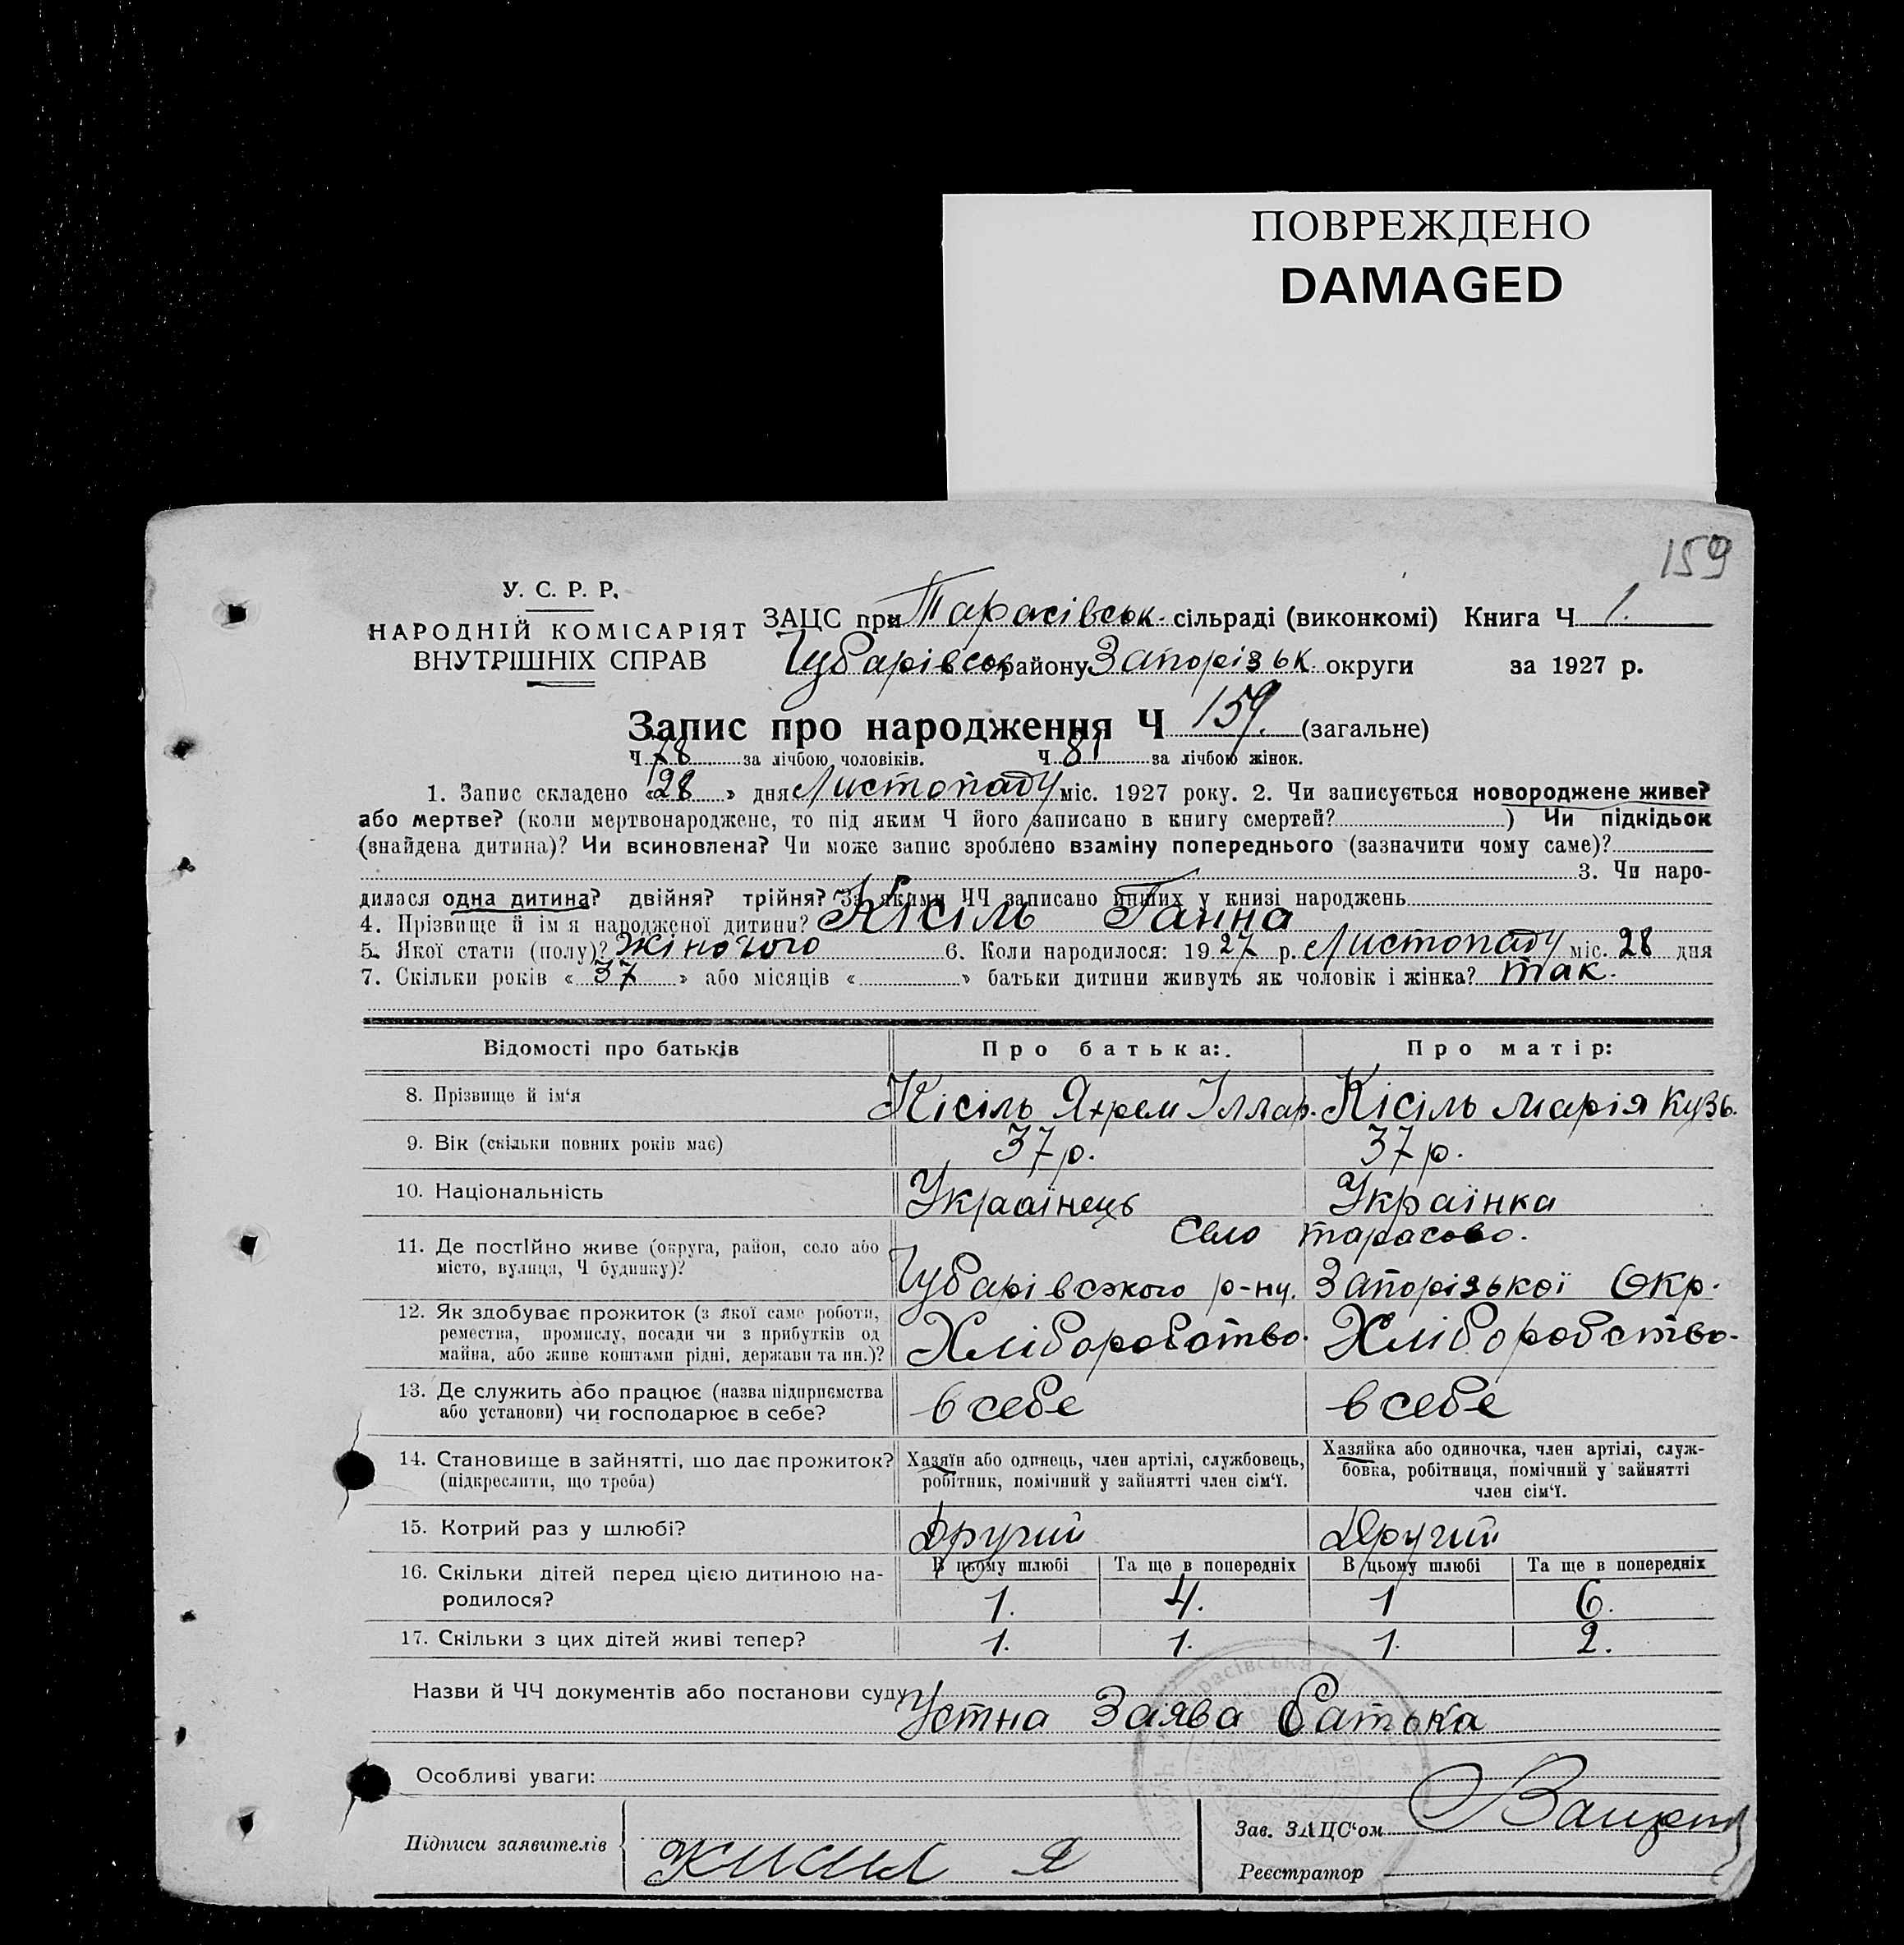 ПОВРЕЖДЕНО
DAMAGED
159
У. С. Р. Р.
НАРОДНІЙ КОМІСАРІЯТ
ВНУТРІШНІХ СПРАВ
ЗАЦС при Тарасівськ. сільраді (виконкомі) Книга Ч 1.
Чубарівськ району Запорізьк. округи за 1927 р.
Запис про народження Ч 159. (загальне)
Ч 78 за лічбою чоловіків. Ч 81 за лічбою жінок.
1. Запис складено «28» дня Листопаду міс. 1927 року. 2. Чи записується новороджене живе?
або мертве? (коли мертвонароджене, то під яким Ч його записано в книгу смертей? ) Чи підкідьок
(знайдена дитина)? Чи всиновлена? Чи може запис зроблено взаміну попереднього (зазначити чому саме)?
3. Чи наро-
дилася одна дитина? двійня? трійня? За якими ЧЧ записано инших у книзі народжень
4. Прізвище й імя народженої дитини? Кісіль Ганна
5. Якої стати (полу)? жіночого 6. Коли народилося: 1927 р. Листопаду міс. 28 дня
7. Скільки років « 37 » або місяців « » батьки дитини живуть як чоловік і жінка? так.
Відомості про батьків Про батька: Про матір:
8. Прізвище й ім'я Кісіль Яхрем Іллар. Кісіль Марія Кузь.
9. Вік (скільки повних років має) 37 р. 37 р.
10. Національність Украаінець Українка
село Тарасово.
11. Де постійно живе (округа, район, село або
місто, вулиця, Ч будинку)? Чубарівського р-ну. Запорізької Окр.
12. Як здобуває прожиток (з якої саме роботи,
ремества, промислу, посади чи з прибутків од
майна, або живе коштами рідні, держави та ин.)? Хліборобство. Хліборобство.
13. Де служить або працює (назва підприємства
або установи) чи господарює в себе? в себе в себе
14. Становище в зайнятті, що дає прожиток?
(підкреслити, що треба)
Хазяїн або одинець, член артілі, службовець,
робітник, помічний у зайнятті член сім'ї.
Хазяйка або одиночка, член артілі, служ-
бовка, робітниця, помічний у зайнятті
член сім'ї.
15. Котрий раз у шлюбі? Другий Другий
В цьому шлюбі Та ще в попередніх В цьому шлюбі Та ще в попередніх
16. Скільки дітей перед цією дитиною на-
родилося? 1. 4. 1 6.
17. Скільки з цих дітей живі тепер? 1. 1. 1. 2.
Назви й ЧЧ документів або постанови суду
Устна Заява батька
Особливі уваги:
Підписи заявителів Кисил Я
Зав. ЗАЦС'ом
Реєстратор